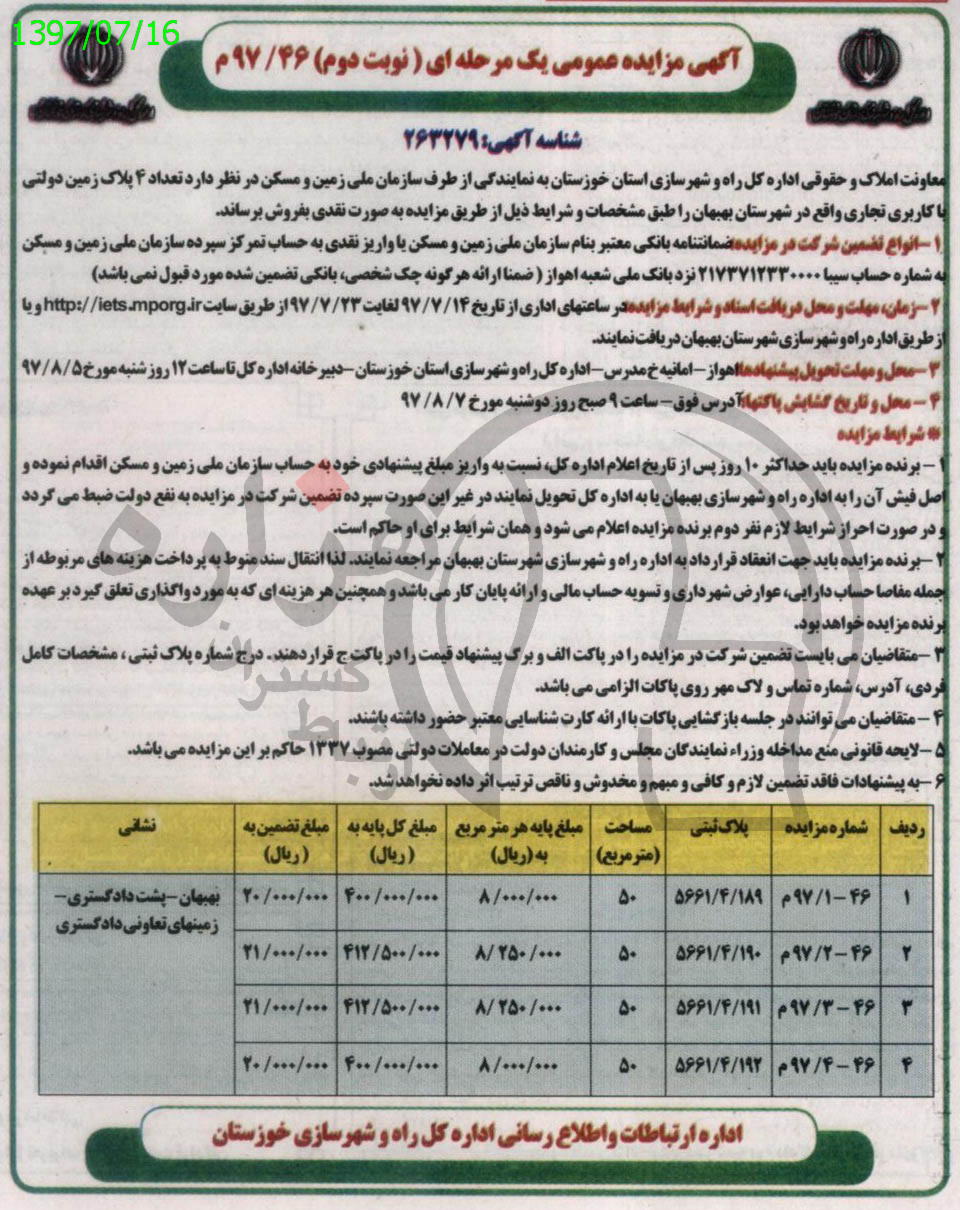 1397/07/16
آگهی مزایده عمومی یک مرحله ای ( نوبت دوم) ۴۶ / ۹۷ م
شناسه آگهی: ۲۶۳۲۷۹
معاونت املاک و حقوقی اداره کل راه و شهرسازی استان خوزستان به نمایندگی از طرف سازمان ملی زمین و مسکن در نظر دارد تعداد ۴ پلاک زمین دولتی
با کاربری تجاری واقع در شهرستان بهبهان را طبق مشخصات و شرایط ذیل از طریق مزایده به صورت نقدی بفروش برساند.
۱ –انواع تضمین شرکت در مزایده:ضمانتنامه بانکی معتبر بنام سازمان ملی زمین و مسکن یا واریز نقدی به حساب تمرکز سپرده سازمان ملی زمین و مسکن
به شماره حساب سیبا ۲۱۷۳۷۱۲۳۳۰۰۰۰ نزد بانک ملی شعبه اهواز ( ضمنا ارائه هر گونه چک شخصی، بانکی تضمین شده مورد قبول نمی باشد)
۲ –زمان، مهلت و محل دریافت اسناد و شرایط مزایده:در ساعتهای اداری از تاریخ ۹۷/۷/۱۴ لغایت ۹۷/۷/۲۳ از طریق سایت http://iets.mporg.ir و یا
از طریق اداره راه و شهرسازی شهرستان بهبهان دریافت نمایند.
۳ –محل و مهلت تحویل پیشنهادها:اهواز – امانیه خ مدرس – اداره کل راه و شهرسازی استان خوزستان –دبیرخانه اداره کل تا ساعت ۱۲ روز شنبه مورخ ۹۷/۸/۵
۴ – محل و تاریخ گشایش پاکتها:آدرس فوق – ساعت ۹ صبح روز دوشنبه مورخ ۹۷/۸/۷
* شرایط مزایده
۱ – برنده مزایده باید حداکثر ۱۰ روز پس از تاریخ اعلام اداره کل، نسبت به واریز مبلغ پیشنهادی خود به حساب سازمان ملی زمین و مسکن اقدام نموده و
اصل فیش آن را به اداره راه و شهرسازی بهبهان یا به اداره کل تحویل نمایند در غیر این صورت سپرده تضمین شرکت در مزایده به نفع دولت ضبط می گردد
و در صورت احراز شرایط لازم نفر دوم برنده مزایده اعلام می شود و همان شرایط برای او حاکم است.
۲ –برنده مزایده باید جهت انعقاد قرارداد به اداره راه و شهرسازی شهرستان بهبهان مراجعه نمایند. لذا انتقال سند منوط به پرداخت هزینه های مربوطه از
جمله مفاصا حساب دارایی، عوارض شهرداری و تسویه حساب مالی و ارائه پایان کار می باشد و همچنین هر هزینه ای که به مورد واگذاری تعلق گیرد بر عهده
برنده مزایده خواهد بود.
۳ –متقاضیان می بایست تضمین شرکت در مزایده را در پاکت الف و برگ پیشنهاد قیمت را در پاکت ج قرار دهند. درج شماره پلاک ثبتی ، مشخصات کامل
فردی، آدرس، شماره تماس و لاک مهر روی پاکات الزامی می باشد.
۴ – متقاضیان می توانند در جلسه بازگشایی پاکات با ارائه کارت شناسایی معتبر حضور داشته باشند.
۵ –لایحه قانونی منع مداخله وزراء نمایندگان مجلس و کارمندان دولت در معاملات دولتی مصوب ۱۳۳۷ حاکم بر این مزایده می باشد.
۶ –به پیشنهادات فاقد تضمین لازم و کافی و مبهم و مخدوش و ناقص ترتیب اثر داده نخواهد شد.
ردیف شماره مزایده پلاک ثبتی مساحت (متر مربع) مبلغ پایه هر متر مربع به (ریال) مبلغ کل پایه به ( ریال) مبلغ تضمین به ( ریال) نشانی
۱ ۴۶ – ۹۷/۱م ۵۶۶۱/۴/۱۸۹ ۵۰ ۸/۰۰۰/۰۰۰ ۴۰۰/۰۰۰/۰۰۰ ۲۰/۰۰۰/۰۰۰ بهبهان –پشت دادگستری– زمینهای تعاونی دادگستری
۲ ۴۶ – ۹۷/۲م ۵۶۶۱/۴/۱۹۰ ۵۰ ۸/۲۵۰/۰۰۰ ۴۱۲/۵۰۰/۰۰۰ ۲۱/۰۰۰/۰۰۰
۳ ۴۶ – ۹۷/۳م ۵۶۶۱/۴/۱۹۱ ۵۰ ۸/۲۵۰/۰۰۰ ۴۱۲/۵۰۰/۰۰۰ ۲۱/۰۰۰/۰۰۰
۴ ۴۶ – ۹۷/۴م ۵۶۶۱/۴/۱۹۲ ۵۰ ۸/۰۰۰/۰۰۰ ۴۰۰/۰۰۰/۰۰۰ ۲۰/۰۰۰/۰۰۰
اداره ارتباطات و اطلاع رسانی اداره کل راه و شهرسازی خوزستان